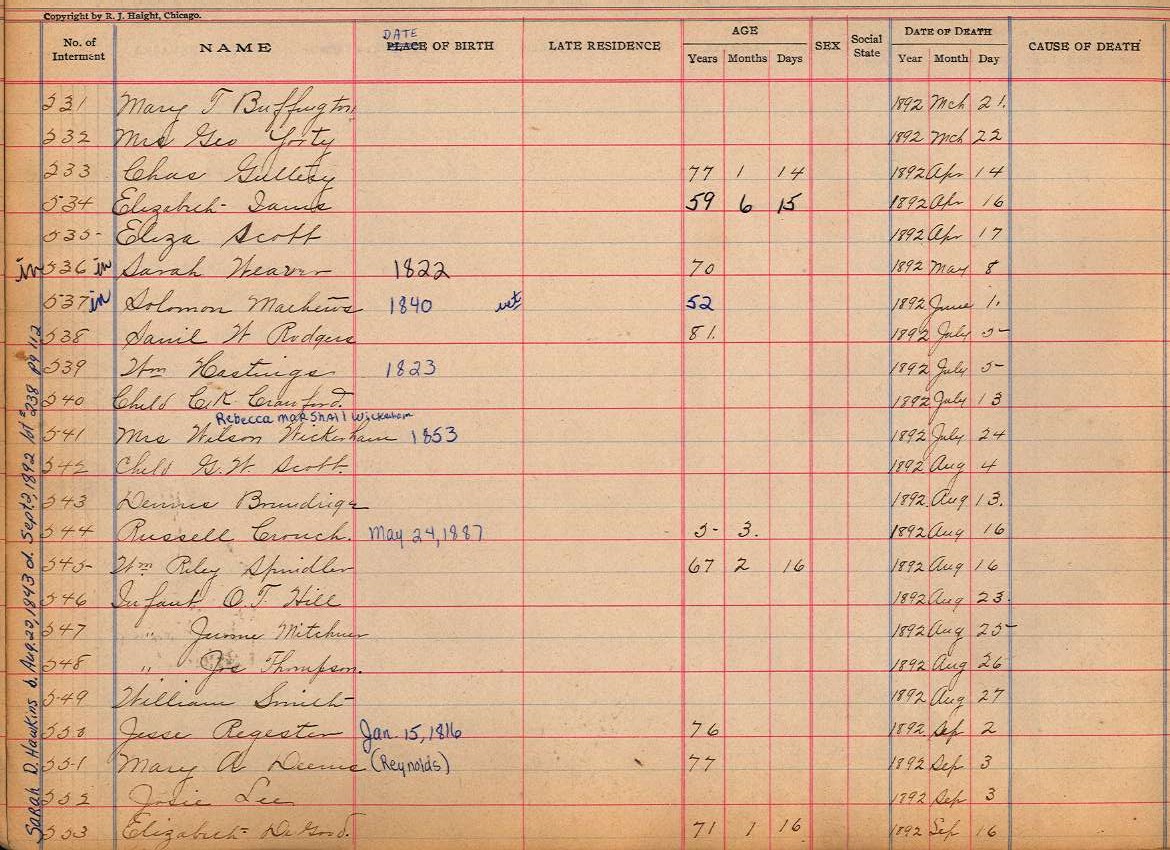 Copyright by R. J. Haight, Chicago.
No. of Interment NAME DATE PLACE OF BIRTH LATE RESIDENCE AGE Years Months Days SEX Social State DATE OF DEATH Year Month Day CAUSE OF DEATH
531 Mary T Buffington 1892 Mch 21.
532 Mrs Geo Yorty 1892 Mch 22
533 Chas Gulley 77 1 14 1892 Apr 14
534 Elizabeth Davis 59 6 15 1892 Apr 16
535 Eliza Scott 1892 Apr 17
in 536 in Sarah Weaver 1822 70 1892 May 8
537 in Solomon Mathews 1840 vet 52 1892 June 1.
538 Danil W Rodgers 81. 1892 July 5
539 Wm Hastings 1823 1892 July 5
540 Child C.K. Crawford. 1892 July 13
Rebecca Marshall Wickersham
541 Mrs Wilson Wickersham 1853 1892 July 24
542 Child G.W. Scott. 1892 Aug 4
543 Dennis Brundrige 1892 Aug 13.
544 Russell Crouch. May 24, 1887 5 3. 1892 Aug 16
545 Wm Riley Spindler 67 2 16 1892 Aug 16
546 Infant O.T. Hill 1892 Aug 23.
547 " Mitchner 1892 Aug 25
548 " Jos Thompson. 1892 Aug 26
549 William Smith 1892 Aug 27
550 Jesse Regester Jan. 15, 1816 76 1892 Sep 2
551 Mary A Deems (Reynolds) 77 1892 Sep 3
552 Josie Lee 1892 Sep 3
553 Elizabeth DeGood. 71 1 16 1892 Sep 16
Sarah D. Hawkins b. Aug. 22, 1843 d. Sept 2, 1892 lot # 238 pg 112